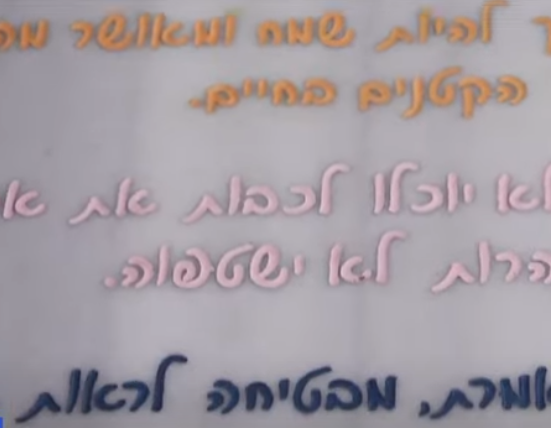 להיות שמח ומאושר
הקטנים בחיים.
לא יוכלו לכבות את
הרות לא ישטפוה.
מבטיחה לראות